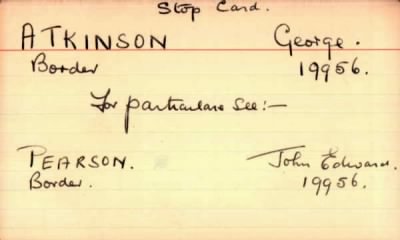 Stop Card.
ATKINSON George.
Border 19956.
For particulars see:-
PEARSON. John Edward.
Border. 19956.